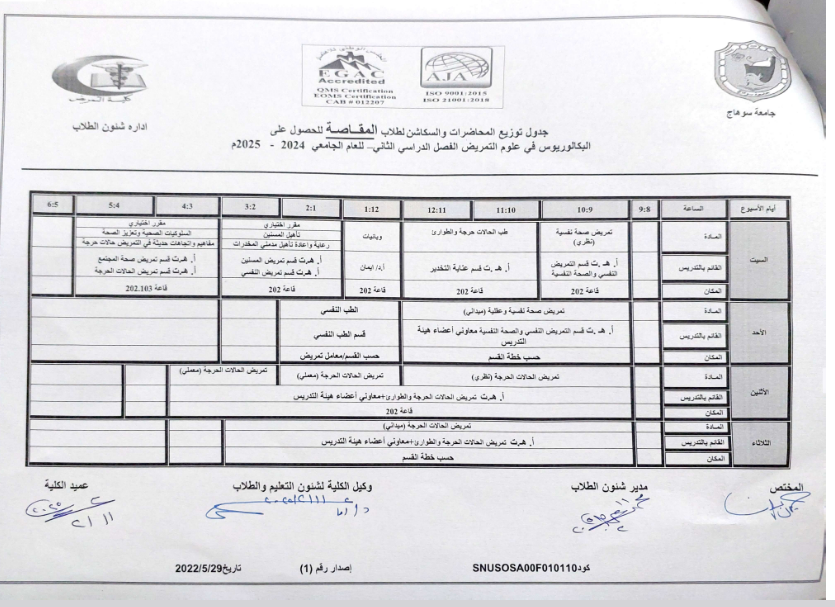 كلية التمريض
اداره شئون الطلاب
EGAC
Accredited
QMS Certification
EOMS Certification
CAB # 012207
AJA
ISO 9001:2015
ISO 21001:2018
جامعة سوهاج
جدول توزيع المحاضرات والسكاشن لطلاب المقـــاصـة للحصول على
البكالوريوس في علوم التمريض الفصل الدراسي الثاني– للعام الجامعي 2024 - 2025م
أيام الأسبوع الساعة 9:8 10:9 11:10 12:11 1:12 2:1 3:2 4:3 5:4 6:5
السبت
المادة
تمريض صحة نفسية (نظري)
طب الحالات حرجة والطوارئ
مقرر اختياري
تأهيل المسنين
رعاية واعادة تأهيل مدمني المخدرات
مقرر اختياري
السلوكيات الصحية وتعزيز الصحة
مفاهيم واتجاهات حديثة في التمريض حالات حرجة
القائم بالتدريس
أ. هـ .ت قسم التمريض النفسي والصحة النفسية
أ. هـ .ت قسم عناية التخدير
أ.د/ ايمان
أ. هـ.ت قسم تمريض المسنين
أ. هـ.ت قسم تمريض النفسي
أ. هـ.ت قسم تمريض صحة المجتمع
أ. هـ.ت قسم تمريض الحالات الحرجة
المكان
قاعة 202
قاعة 202
قاعة 202
قاعة 202
قاعة 202.103
الأحد
المادة
تمريض صحة نفسية وعقلية (ميداني)
الطب النفسي
القائم بالتدريس
أ. هـ .ت قسم التمريض النفسي والصحة النفسية معاوني أعضاء هيئة التدريس
قسم الطب النفسي
المكان
حسب خطة القسم
حسب القسم/معامل تمريض
الأثنين
المادة
تمريض الحالات الحرجة (نظري)
تمريض الحالات الحرجة (معملي)
تمريض الحالات الحرجة (معملي)
القائم بالتدريس
أ. هـ.ت تمريض الحالات الحرجة والطوارئ+معاوني أعضاء هيئة التدريس
المكان
قاعة 202
الثلاثاء
المادة
تمريض الحالات الحرجة (ميداني)
القائم بالتدريس
أ. هـ.ت تمريض الحالات الحرجة والطوارئ+معاوني أعضاء هيئة التدريس
المكان
حسب خطة القسم
المختص
مدير شئون الطلاب
وكيل الكلية لشئون التعليم والطلاب
عميد الكلية
كودSNUSOSA00F010110
إصدار رقم (1)
تاريخ2022/5/29